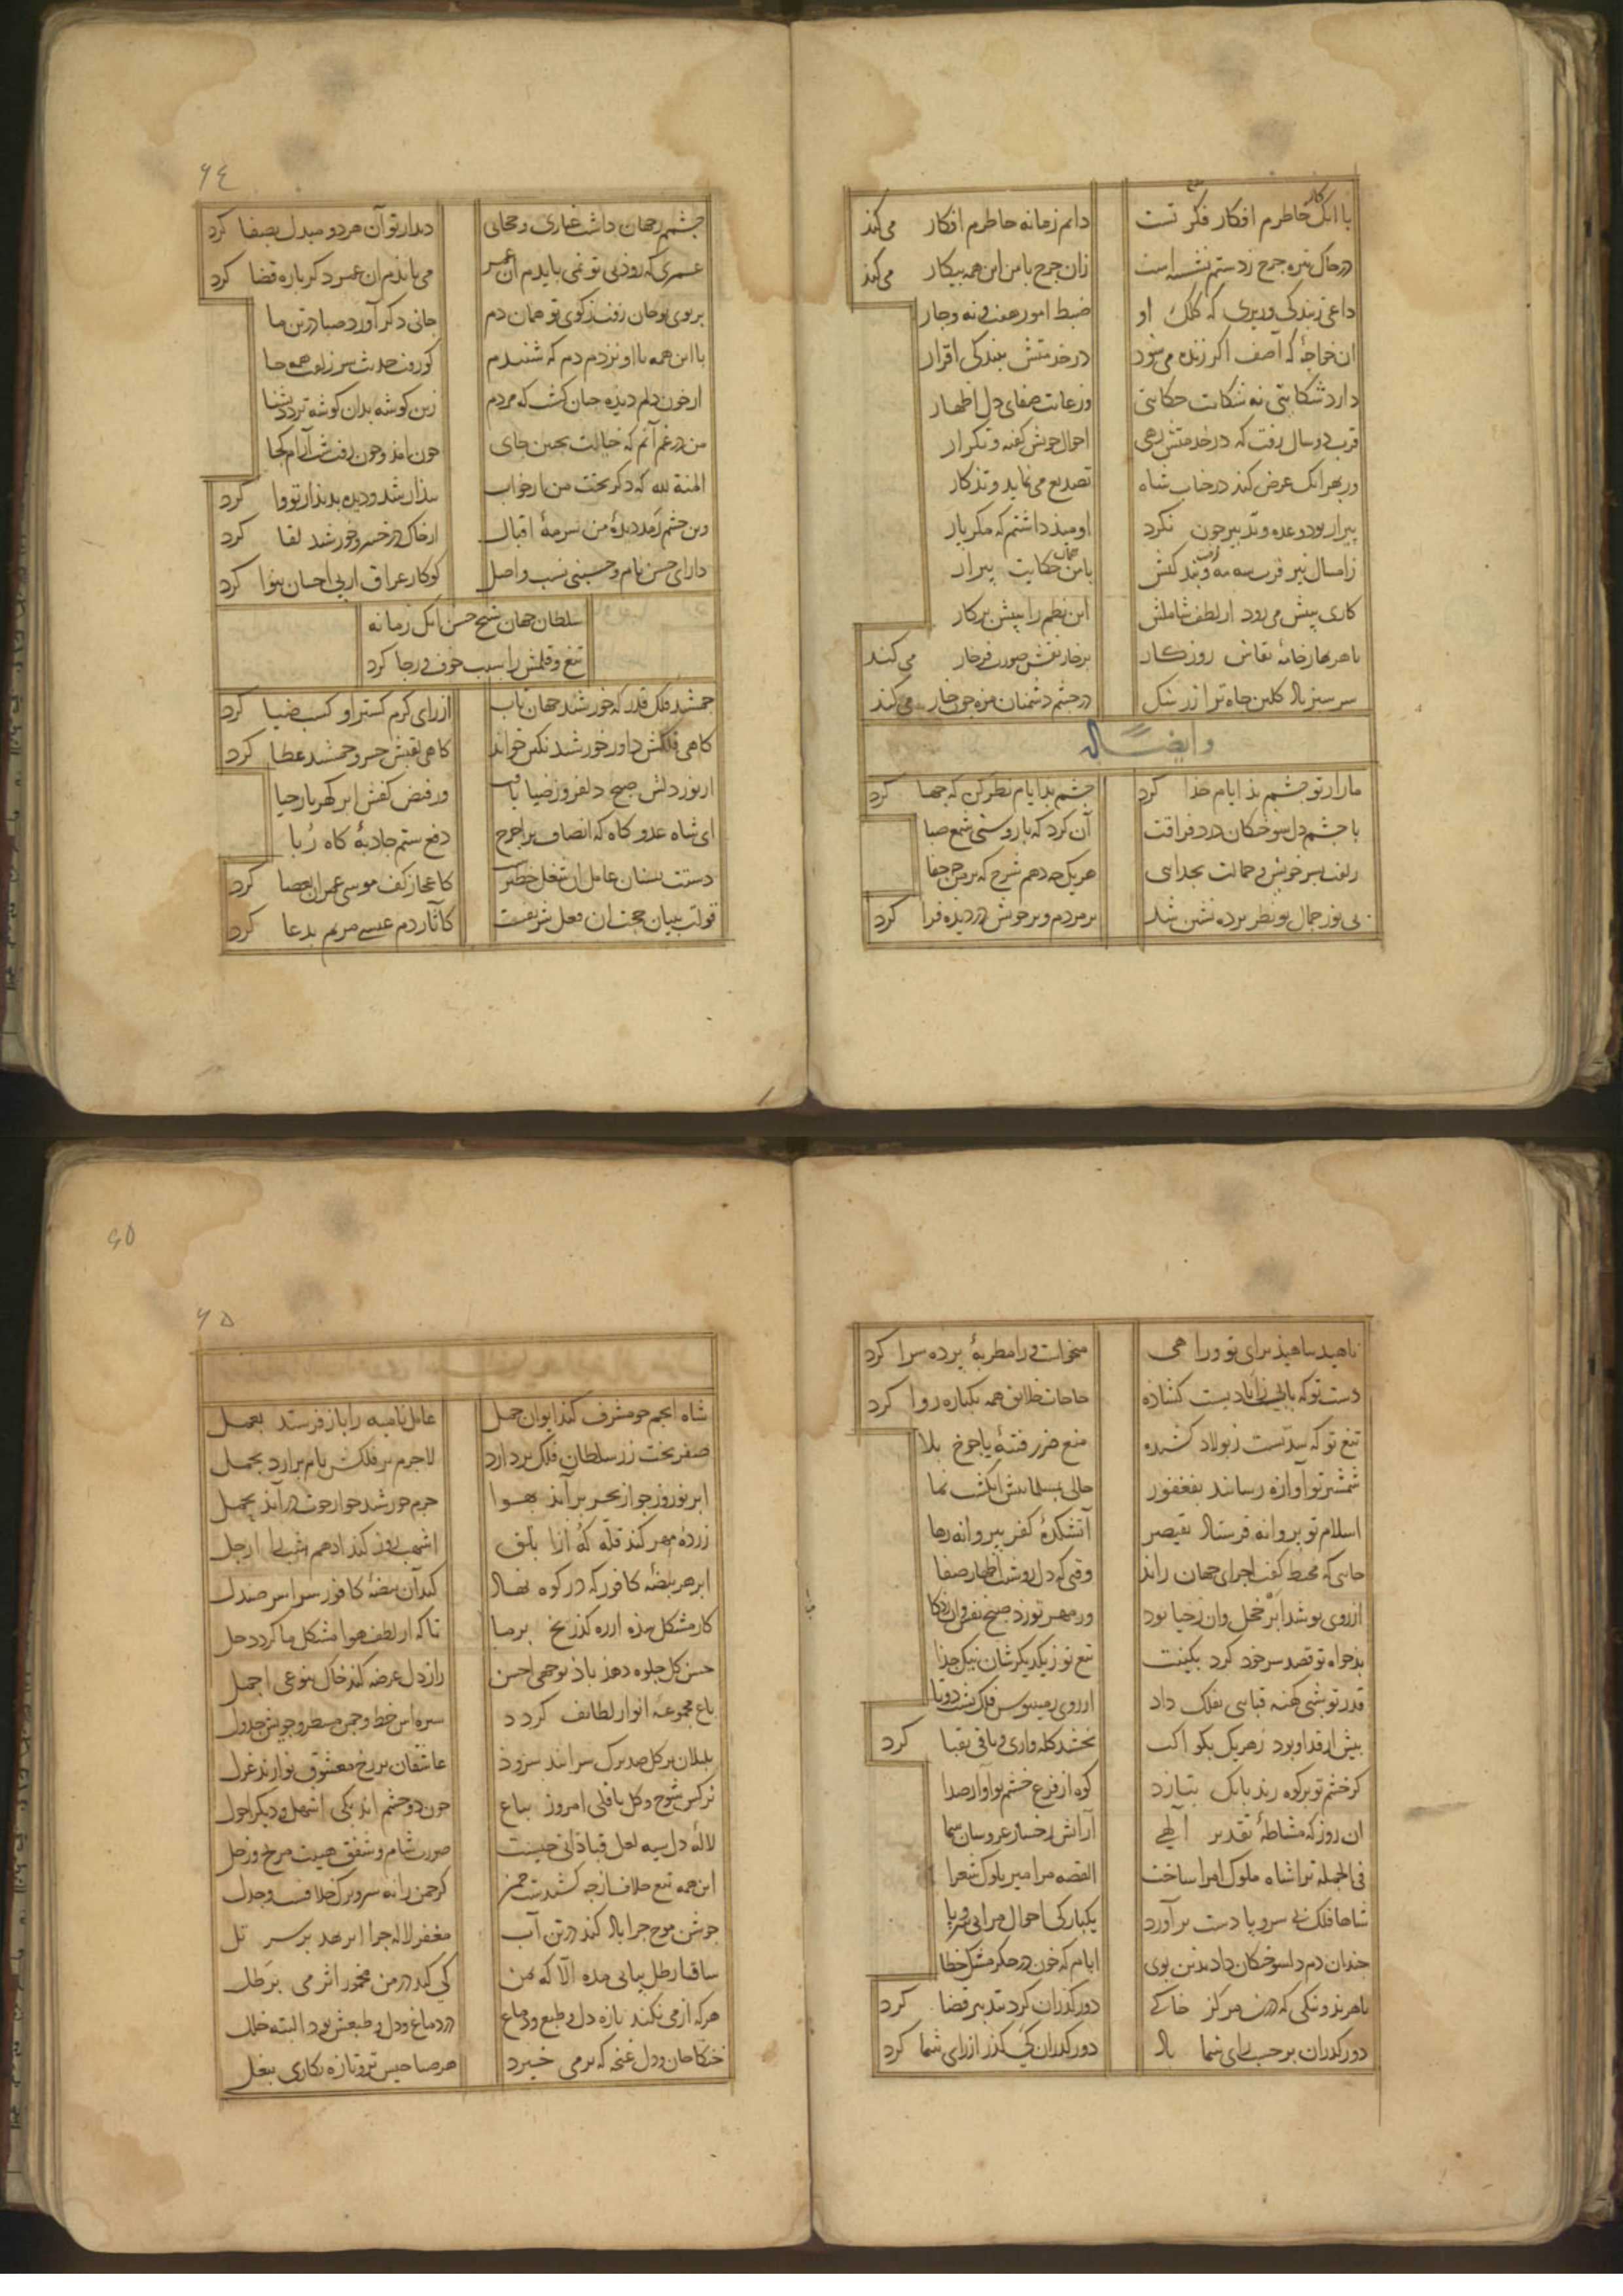 با انک کار خاطرم افکار فکر تست دایم زمانه خاطرم افکار می‌کند
در خاک تیره چرخ ز دستم نشسته است زان چرخ با من این همه پیکار می‌کند
داعی ز بندگی وزیری که کلک او ضبط امور هفت و نه و چار
ان خواجهٔ که آصف اکر زنده می‌شود در خدمتش ببندکی اقرار
دارد شکایتی نه شکایت حکایتی وز غایت صفای دل اظهار
قرب دو سال رفت که در خدمتش رهی احوال خویش کفته و تکرار
وز بهر انک عرض کند در جناب شاه تصدیع می‌نماید و تذکار
پیرار بود وعده و تدبیر چون نکرد اومید داشتم که مکر پار
زامسال نیز قرب سه مه رفت و بند کش با من همان حکایت پیرار
کاری ز پیش می‌رود از لطف شاملش این نظم را ز پیش برکار
تا هر بهار خانهٔ نقاش روزکار بر خار نقش صورت فرخار می‌کند
سرسبز باد کلبن جاه تو از رشک در چشم دشمنان مژه چون خار می‌کند
وایضاً له
ما را ز تو چشم بد ایام جدا کرد چشم بد ایام نظر کن که چها کرد
با چشم دل سوختکان درد فراقت آن کرد که با روشنی شمع صبا
زلفت بسر خویش و جمالت بجدایی هر یک چه دهم شرح که بر من چه جفا
بی نور جمال تو نظر پرده نشین شد بر مردم و بر خویش در دیده فرا کرد
٦٤
چشمم ز جهان داشت غباری و حجابی دیدار تو آن هر دو مبدل بصفا کرد
عمری که رود بی تو نمی‌بایدم ان عمر می‌بایدم ان عمر دکرباره قضا کرد
بر بوی تو جان رفت ز کوی تو همان دم جانی دکر آورد صبا در تن ما
با این همه با او نزدم دم که شنیدم کو رفت حدیث سر زلفت همه جا
از خون دلم دیده چنان کشت که مردم زین کوشه بدان کوشه تردد بشنا
من در غم آنم که خیالت بچنین جای چون آمد و چون رفت شب آرام کجا
المنة لله که دکر بخت من از خواب بیدار شد و دیده بدیدار تو وا کرد
وین چشم رمد دیدهٔ من سرمهٔ اقبال از خاک در خسرو خورشید لقا کرد
دارای حسن نام و حسینی نسب و اصل کو کار عراق از پی احسان بنوا کرد
سلطان جهان شیخ حسن انک زمانه
تیغ و قلمش را سبب خوف و رجا کرد
جمشید فلک قدر که خورشید جهان تاب از رای کرم کستر او کسب ضیا کرد
کاهی فلکش داور خورشید نکین خواند کاهی لقبش خسرو جمشید عطا کرد
از نور دلش صبح دلفروز ضیا یافت وز فیض کفش ابر کهربار حیا
ای شاه عدو کاه که انصاف تو از چرخ دفع ستم جاذبهٔ کاه ربا
دستت بسنان عامل ان شغل خطیر کاعجاز کف موسی عمران بعصا کرد
قولت ببیان حجت ان فعل شریفست کآثار دم عیسی مریم بدعا کرد
ناهید بناهید برای تو ورا هی میخواست ورا مطربهٔ پرده سرا کرد
دست تو که بابیست ز ابادیت کشاده حاجات خلایق همه یکباره روا کرد
تیغ تو که سدیست ز پولاد کشیده منع ضرر فتنهٔ یاجوج بلا
شمشیر تو آوازه رسانید بفغفور حالی بمسلمانیش انکشت نما
اسلام تو پروانه فرستاد بقیصر آتشکدهٔ کفر ز پروانه رها
جایی که محیط کفت اجرای جهان راند وقتی که دل روشنت اظهار صفا
از روی تو شد ابر خجل وان ز حیا بود ور مهر تو زد صبح نفس وان ز ذکا
بدخواه تو قصد سر خود کرد بکینت تیغ تو ز یکدیکرشان نیک جدا
قدر تو شبی کهنه قبایی بفلک داد از روی زمین‌بوس فلک پشت دوتا
بیش از قد او بود ز هر یک بکواکب بخشید کله‌واری و باقی بقبا کرد
کر خشم تو بر کوه زند بانک نیارد کوه از فزع خشم تو آواز صدا
ان روز که مشاطهٔ تقدیر آلهی آرایش رخسار عروسان سما
فی الجمله ترا شاه ملوک امرا ساخت القصه مرا میر ملوک شعرا
شاها فلک بی سر و پا دست برآورد یکبارکی احوال مرا بی سر و پا
چندان دم دلسوختکان داد بدین بوی ایام که خون در جکر مشک خطا
تا هر بد و نیکی که درین مرکز خاکی دور کذران کرد بتدبیر قضا کرد
دور کذران بر حسب رای شما باد دور کذران کی کذر از رای شما کرد
٦٥
٦٥
شاه انجم چو مشرف کند ایوان حمل عامل نامیه را باز فرستد بعمل
صفر تخت زر سلطان فلک بردارد لاجرم بر فلکش نام برارد بجمل
ابر نوروز چو از بحر برآید بهوا جرم خورشید چو از حوت درآید بحمل
زردهٔ مهر کند قلهٔ که را ابلق اشهب روز کند ادهم شب را ارجل
ابر هر بیضهٔ کافور که در کوه نهاد کند آن بیضهٔ کافور سراسر صندل
کار مشکل شده از ره کذر یخ بر ما تا که از لطف هوا مشکل ما کردد حل
حسن کل جلوه دهد باد بوجهی احسن راز دل عرضه کند خاک بنوعی اجمل
باغ مجموعه انوار لطایف کردد سبزه‌اش خط و چمن مسطر و جویش جدول
بلبلان بر کل صدبرک سرایند سرود عاشقان بر رخ معشوق نوازند غزل
نرکس شوخ و کل باقلی امروز بباغ چون دو چشم اند یکی اشهل و دیکر احول
لالهٔ دل سیه لعل قبا دانی چیست صورت شام و شفق هییت مریخ و زحل
این همه تیغ خلاف از چه کشیدست چمن کر چمن را نه سر و برک خلافست و جدل
جوشن موج چرا باد کند در تن آب مغفر لاله چرا ابر نهد بر سر تل
ساقیا رطل پیاپی مده الا که بمن کی کند در من مخمور اثر می برطل
هر که از می نکند تازه دل و طبع و دماغ در دماغ و دل و طبعش بود البته خلل
خنکا جان و دل غنچه که برمی خیزد هر صباحیش تر و تازه نکاری ببغل